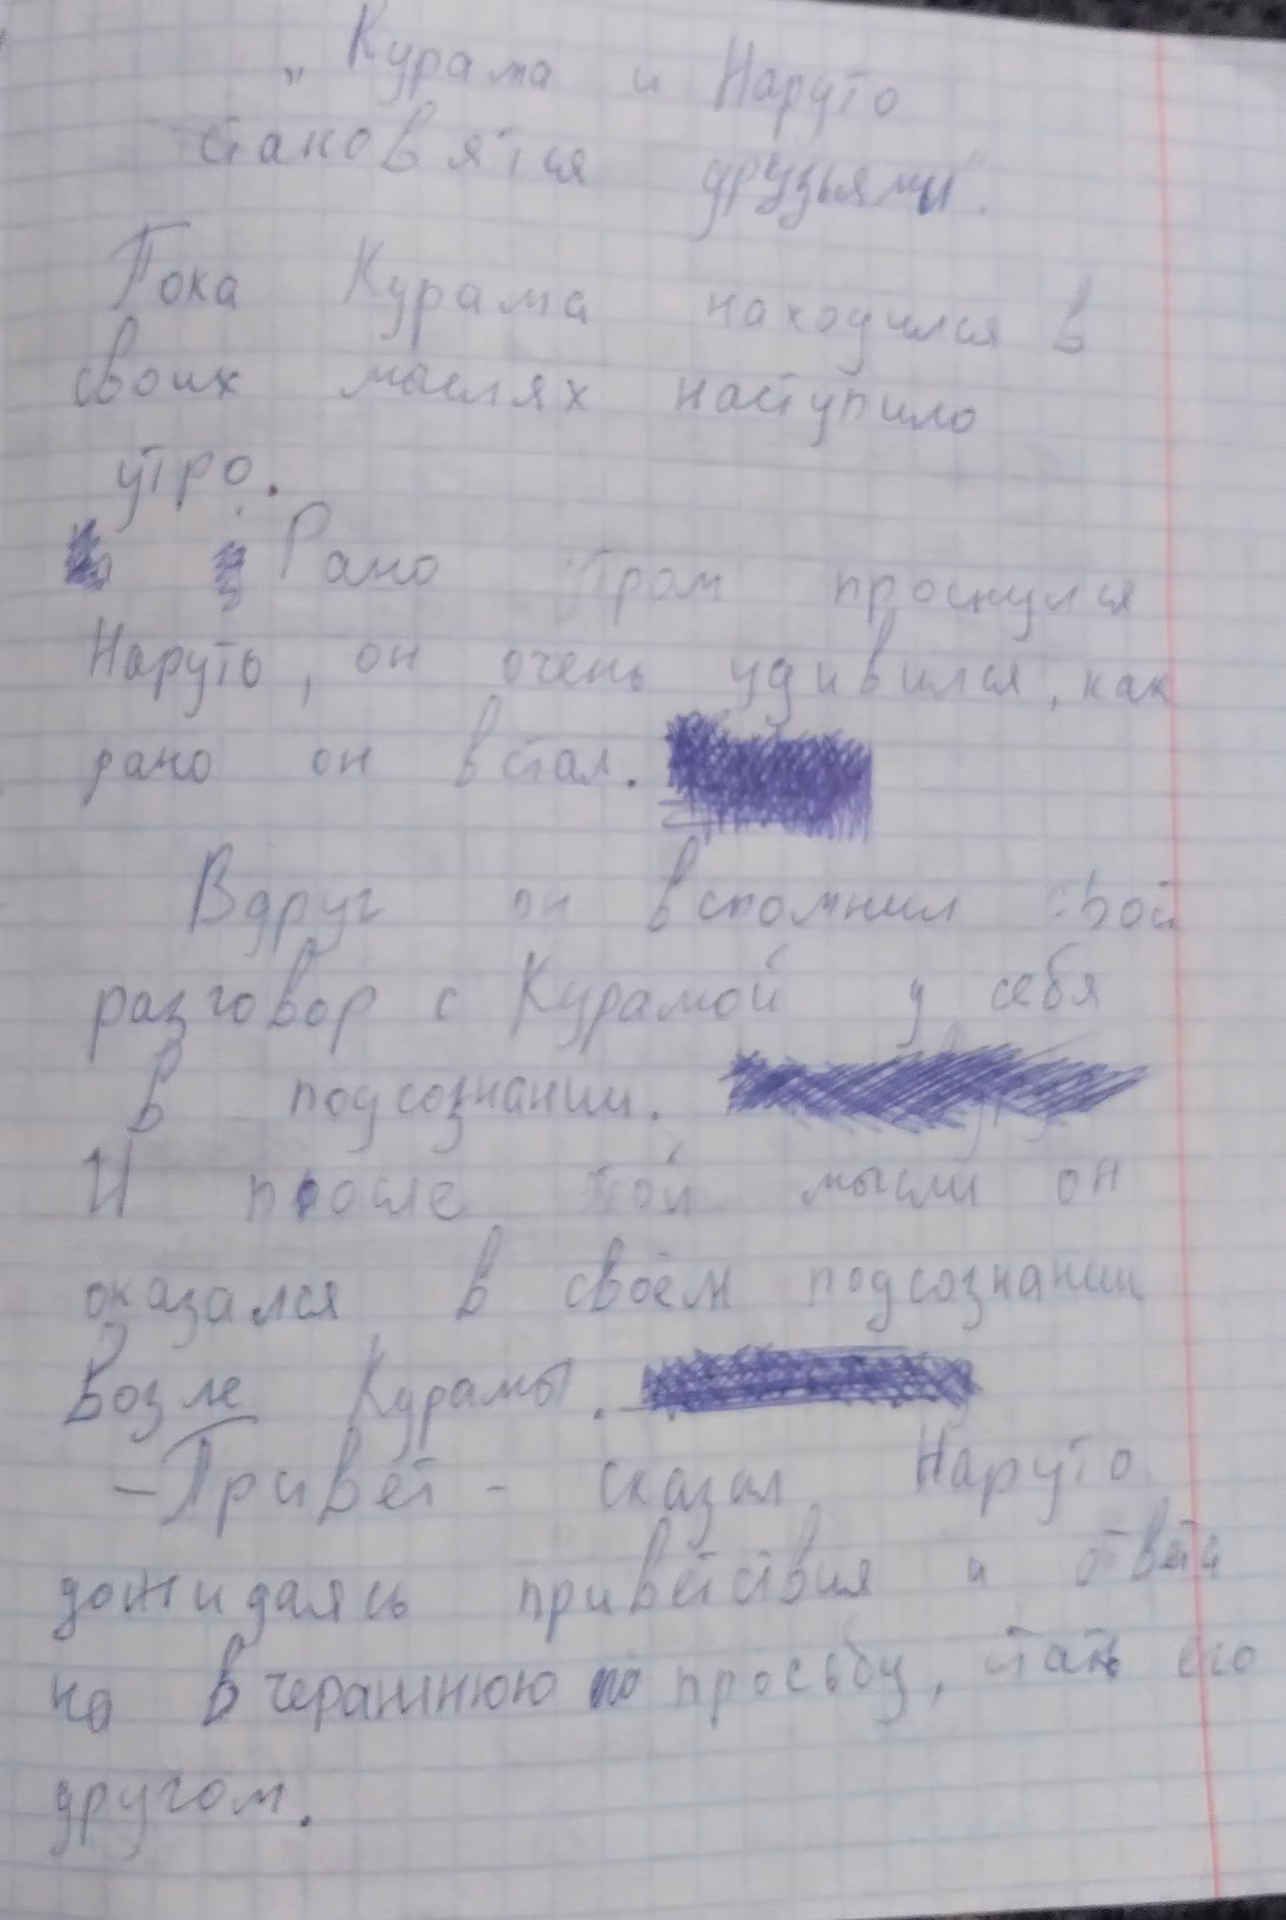 „Курама и Наруто
становятся друзьями".
Пока Курама находился в
своих мыслях наступило
утро.
Рано утром проснулся
Наруто, он очень удивился, как
рано он встал.
Вдруг он вспомнил свой
разговор с Курамой у себя
в подсознании.
И после той мысли он
оказался в своём подсознании
возле Курамы.
- Привет - сказал Наруто
дожидаясь приветствия и ответа
на вчерашнюю просьбу, стать его
другом.